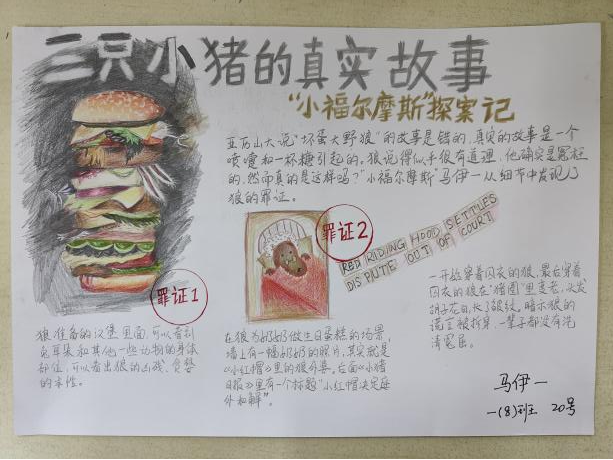 三只小猪的真实故事
“小福尔摩斯”探案记
亚历山大说“坏蛋大野狼”的故事是错的，真实的故事是一个
喷嚏和一杯糖引起的，狼说得似乎很有道理，他确实是冤枉
的，然而真的是这样吗？“小福尔摩斯”马伊一从细节中发现了
狼的罪证。
罪证1
狼准备的汉堡里面，可以看到
兔耳朵和其他一些动物的身体
部位，可以看出狼的凶残、贪婪
的本性。
罪证2
RED RIDING HOOD SETTLES
DISPUTE OUT OF COURT
在狼为奶奶做生日蛋糕的场景，
墙上有一幅奶奶的照片，其实就是
《小红帽》里的狼外婆。后面《小猪
日报》里有一个标题“小红帽决定庭
外和解”。
一开始穿着囚衣的狼，最后穿着
囚衣的狼在“猪圈”里变老，头发
胡子花白，长了皱纹，暗示狼的
谎言被拆穿，一辈子都没有洗
清冤屈。
马伊一
一(8)班 20号